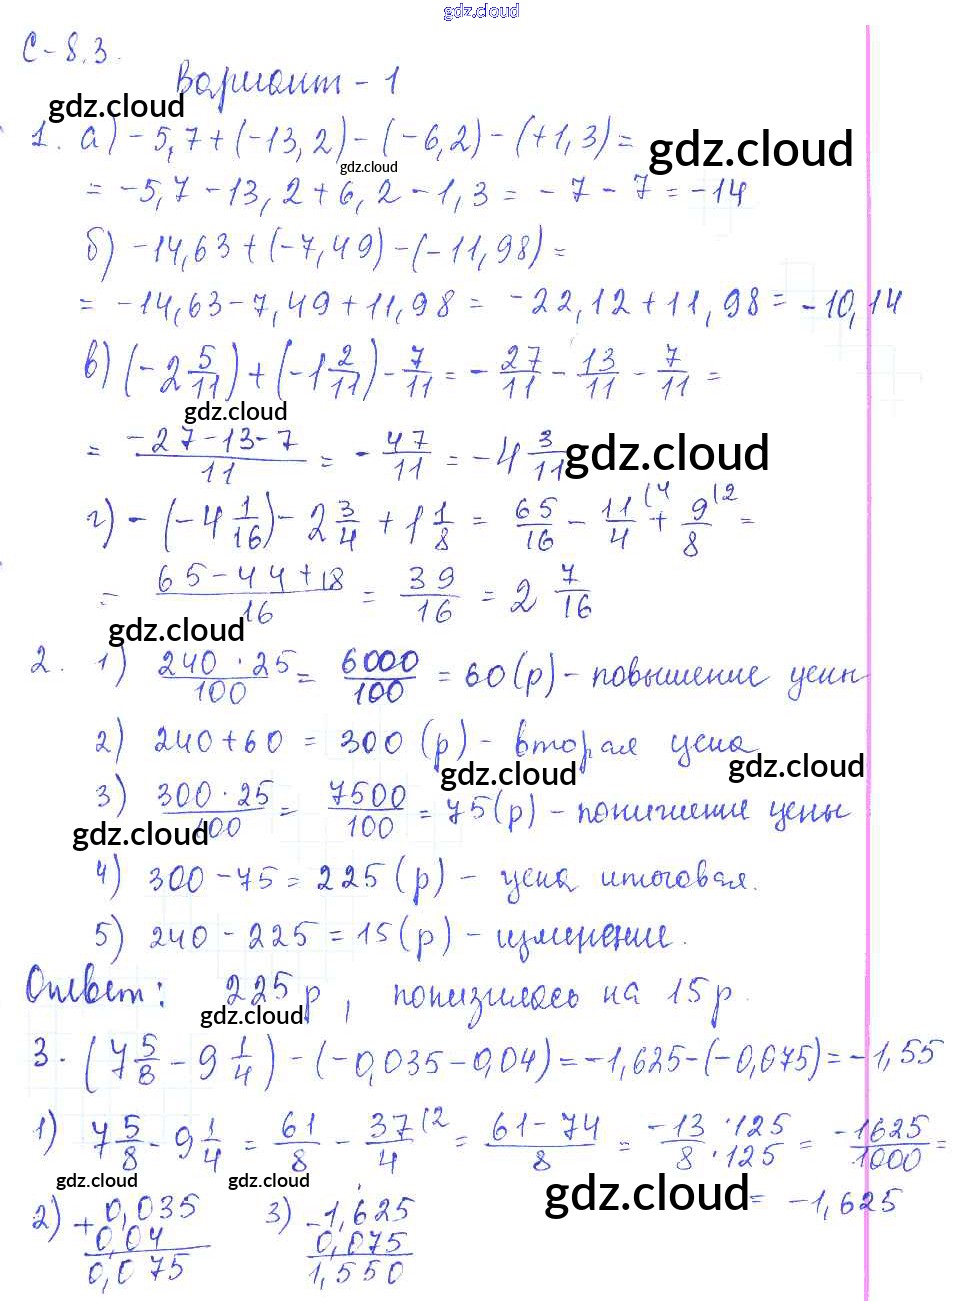 gdz.cloud
С-8.3.
Вариант-1
gdz.cloud
1. а) -5,7+(-13,2)-(-6,2)-(+1,3)=
gdz.cloud
gdz.cloud
= -5,7-13,2+6,2-1,3= -7-7=-14
б) -14,63+(-7,49)-(-11,98)=
= -14,63-7,49+11,98= -22,12+11,98=-10,14
в) (-2 5/11)+(-1 2/11)-7/11=-27/11-13/11-7/11=
gdz.cloud
= (-27-13-7)/11=-47/11=-4 3/11
gdz.cloud
г) -(-4 1/16)-2 3/4+1 1/8= 65/16-11/4(4+9/8(2=
= (65-44+18)/16=39/16=2 7/16
gdz.cloud
2. 1) (240·25)/100=6000/100=60(р)-повышение цены
2) 240+60=300(р)-вторая цена
gdz.cloud
gdz.cloud
3) (300·25)/100=7500/100=75(р)-понижение цены
gdz.cloud
4) 300-75=225(р)-цена итоговая.
5) 240-225=15(р)-изменение.
Ответ: 225р, понизилась на 15р.
gdz.cloud
3. (7 5/8-9 1/4)-(-0,035-0,04)=-1,625-(-0,075)=-1,55
1) 7 5/8-9 1/4=61/8-37/4(2=(61-74)/8=(-13·125)/(8·125)=-1625/1000=
gdz.cloud
gdz.cloud
gdz.cloud
= -1,625
2) +0,035
0,04
0,075
3) -1,625
0,075
1,550